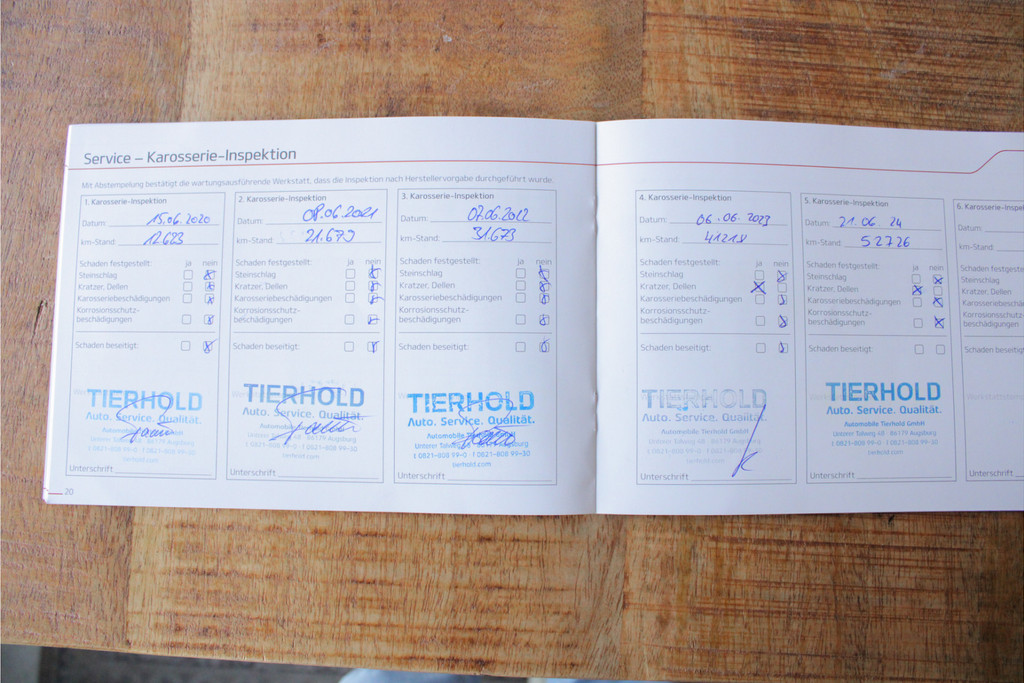 Service – Karosserie-Inspektion
Mit Abstempelung bestätigt die wartungsausführende Werkstatt, dass die Inspektion nach Herstellervorgabe durchgeführt wurde.
1. Karosserie-Inspektion
Datum: 15.06.2020
km-Stand: 12623
Schaden festgestellt: ja nein
Steinschlag
Kratzer, Dellen
Karosseriebeschädigungen
Korrosionsschutz-
beschädigungen
Schaden beseitigt:
TIERHOLD
Auto. Service. Qualität.
Unterer Talweg 48 · 86179 Augsburg
t 0821-808 99-0 · f 0821-808 99-30
tierhold.com
Unterschrift
20
2. Karosserie-Inspektion
Datum: 08.06.2021
km-Stand: 21.679
Schaden festgestellt: ja nein
Steinschlag
Kratzer, Dellen
Karosseriebeschädigungen
Korrosionsschutz-
beschädigungen
Schaden beseitigt:
TIERHOLD
Auto. Service. Qualität.
Unterer Talweg 48 · 86179 Augsburg
t 0821-808 99-0 · f 0821-808 99-30
tierhold.com
Unterschrift
3. Karosserie-Inspektion
Datum: 07.06.2012
km-Stand: 31.673
Schaden festgestellt: ja nein
Steinschlag
Kratzer, Dellen
Karosseriebeschädigungen
Korrosionsschutz-
beschädigungen
Schaden beseitigt:
TIERHOLD
Auto. Service. Qualität.
Automobile
Unterer Talweg 48 Augsburg
t 0821-808 99-0 · f 0821-808 99-30
tierhold.com
Unterschrift
4. Karosserie-Inspektion
Datum: 06.06.2023
km-Stand:
Schaden festgestellt: ja nein
Steinschlag
Kratzer, Dellen
Karosseriebeschädigungen
Korrosionsschutz-
beschädigungen
Schaden beseitigt:
TIERHOLD
Auto. Service. Qualität.
Automobile Tierhold GmbH
Unterer Talweg 48 · 86179 Augsburg
t 0821-808 99-0 · f 0821-808 99-30
tierhold.com
Unterschrift
5. Karosserie-Inspektion
Datum: 21.06 24
km-Stand: 52726
Schaden festgestellt: ja nein
Steinschlag
Kratzer, Dellen
Karosseriebeschädigungen
Korrosionsschutz-
beschädigungen
Schaden beseitigt:
TIERHOLD
Auto. Service. Qualität.
Automobile Tierhold GmbH
Unterer Talweg 48 · 86179 Augsburg
t 0821-808 99-0 · f 0821-808 99-30
tierhold.com
Unterschrift
6. Karosserie-Inspe
Datum:
km-Stand:
Schaden festgeste
Steinschlag
Kratzer, Dellen
Karosseriebeschä
Korrosionsschutz-
beschädigungen
Schaden beseitigt
Unterschrift